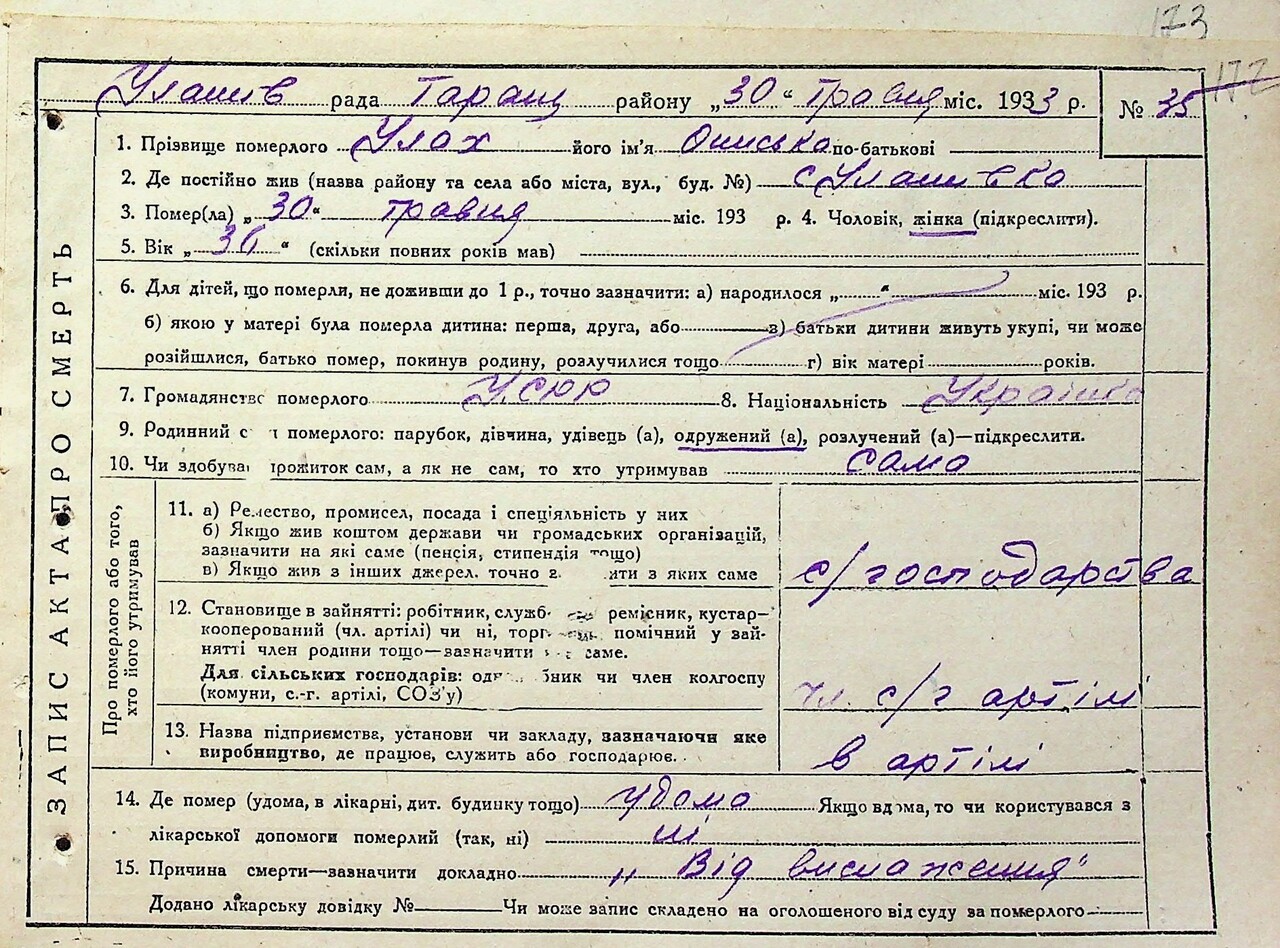 173
172
Улашів рада Таращ району „30“ травня міс. 1933 р. № 35
1. Прізвище померлого Улах його ім'я Ониська по-батькові
2. Де постійно жив (назва району та села або міста, вул., буд. №) с Улашівка
3. Помер(ла) „30“ травня міс. 193 р. 4. Чоловік, жінка (підкреслити).
5. Вік „36“ (скільки повних років мав)
6. Для дітей, що померли, не доживши до 1 р., точно зазначити: а) народилося „ “ міс. 193 р.
б) якою у матері була померла дитина: перша, друга, або в) батьки дитини живуть укупі, чи може
розійшлися, батько помер, покинув родину, розлучилися тощо г) вік матері років.
7. Громадянство померлого УСРР 8. Національність Українка
9. Родинний с т померлого: парубок, дівчина, удівець (а), одружений (а), розлучений (а)—підкреслити.
10. Чи здобува прожиток сам, а як не сам, то хто утримував сама
ЗАПИС АКТА ПРО СМЕРТЬ
Про померлого або того,
хто його утримував
11. а) Ремество, промисел, посада і спеціяльність у них
б) Якщо жив коштом держави чи громадських організацій,
зазначити на які саме (пенсія, стипендія тощо)
в) Якщо жив з інших джерел, точно з ити з яких саме с/господарства
12. Становище в зайнятті: робітник, служб ремісник, кустар—
кооперований (чл. артілі) чи ні, торг помічний у зай-
нятті член родини тощо—зазначити саме.
Для сільських господарів: одн бник чи член колгоспу
(комуни, с.-г. артілі, СОЗ'у) чл. с/г артілі
13. Назва підприємства, установи чи закладу, зазначаючи яке
виробництво, де працює, служить або господарює. в артілі
14. Де помер (удома, в лікарні, дит. будинку тощо) удома Якщо вдома, то чи користувався з
лікарської допомоги померлий (так, ні) ні
15. Причина смерти—зазначити докладно „Від виснаження"
Додано лікарську довідку № Чи може запис складено на оголошеного від суду за померлого